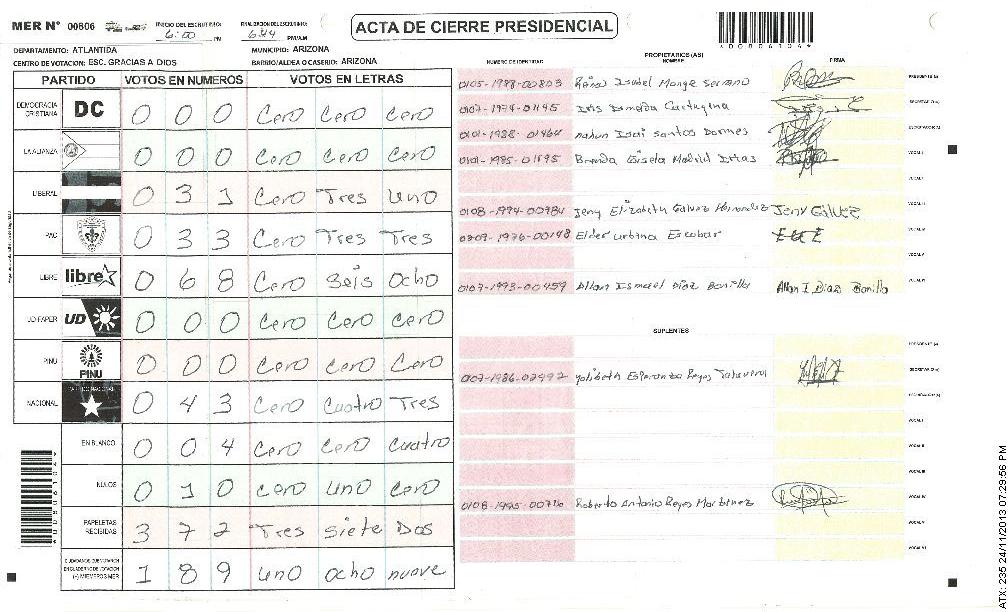 MER N° 00806 INICIO DEL ESCRUTINIO: 6:00 PM FINALIZACION DEL ESCRUTINIO: 6:44 PM/AM ACTA DE CIERRE PRESIDENCIAL
DEPARTAMENTO: ATLANTIDA MUNICIPIO: ARIZONA
CENTRO DE VOTACION: ESC. GRACIAS A DIOS BARRIO/ALDEA O CASERIO: ARIZONA
PARTIDO VOTOS EN NUMEROS VOTOS EN LETRAS
DEMOCRACIA CRISTIANA DC 0 0 0 Cero Cero Cero
LA ALIANZA 0 0 0 Cero Cero Cero
LIBERAL 0 3 1 Cero Tres Uno
PAC 0 3 3 Cero Tres Tres
LIBRE libre 0 6 8 Cero Seis Ocho
UD-FAPER UD 0 0 0 Cero Cero Cero
PINU PINU 0 0 0 Cero Cero Cero
NACIONAL 0 4 3 Cero Cuatro Tres
EN BLANCO 0 0 4 Cero Cero Cuatro
NULOS 0 1 0 Cero Uno Cero
PAPELETAS RECIBIDAS 3 7 2 Tres Siete Dos
(+) MIEMBROS MER 1 8 9 uno ocho nueve
PROPIETARIOS (AS)
NUMERO DE IDENTIDAD NOMBRE FIRMA
0105-1988-00803 Isabel Monge Serrano PRESIDENTE (A)
Iris Cartagena SECRETARIO (A)
0101-1988-01464 Isai Santos
Brenda Gisela Madrid VOCAL I
VOCAL II
0108-1994-00784 Jeny Elizabeth Galvez Hernandez Jeny Galvez VOCAL III
Elder Urbina Escobar VOCAL IV
VOCAL V
0107-1993-00459 Allan Ismael Diaz Bonilla Allan I Diaz Bonilla VOCAL VI
SUPLENTES
PRESIDENTE (A)
Esperanza Reyes SECRETARIO (A)
VOCAL I
VOCAL II
VOCAL III
0108-1995-00716 Roberto Antonio Reyes Martinez VOCAL IV
VOCAL V
VOCAL VI
ATX: 235 24/11/2013 07:29:56 PM